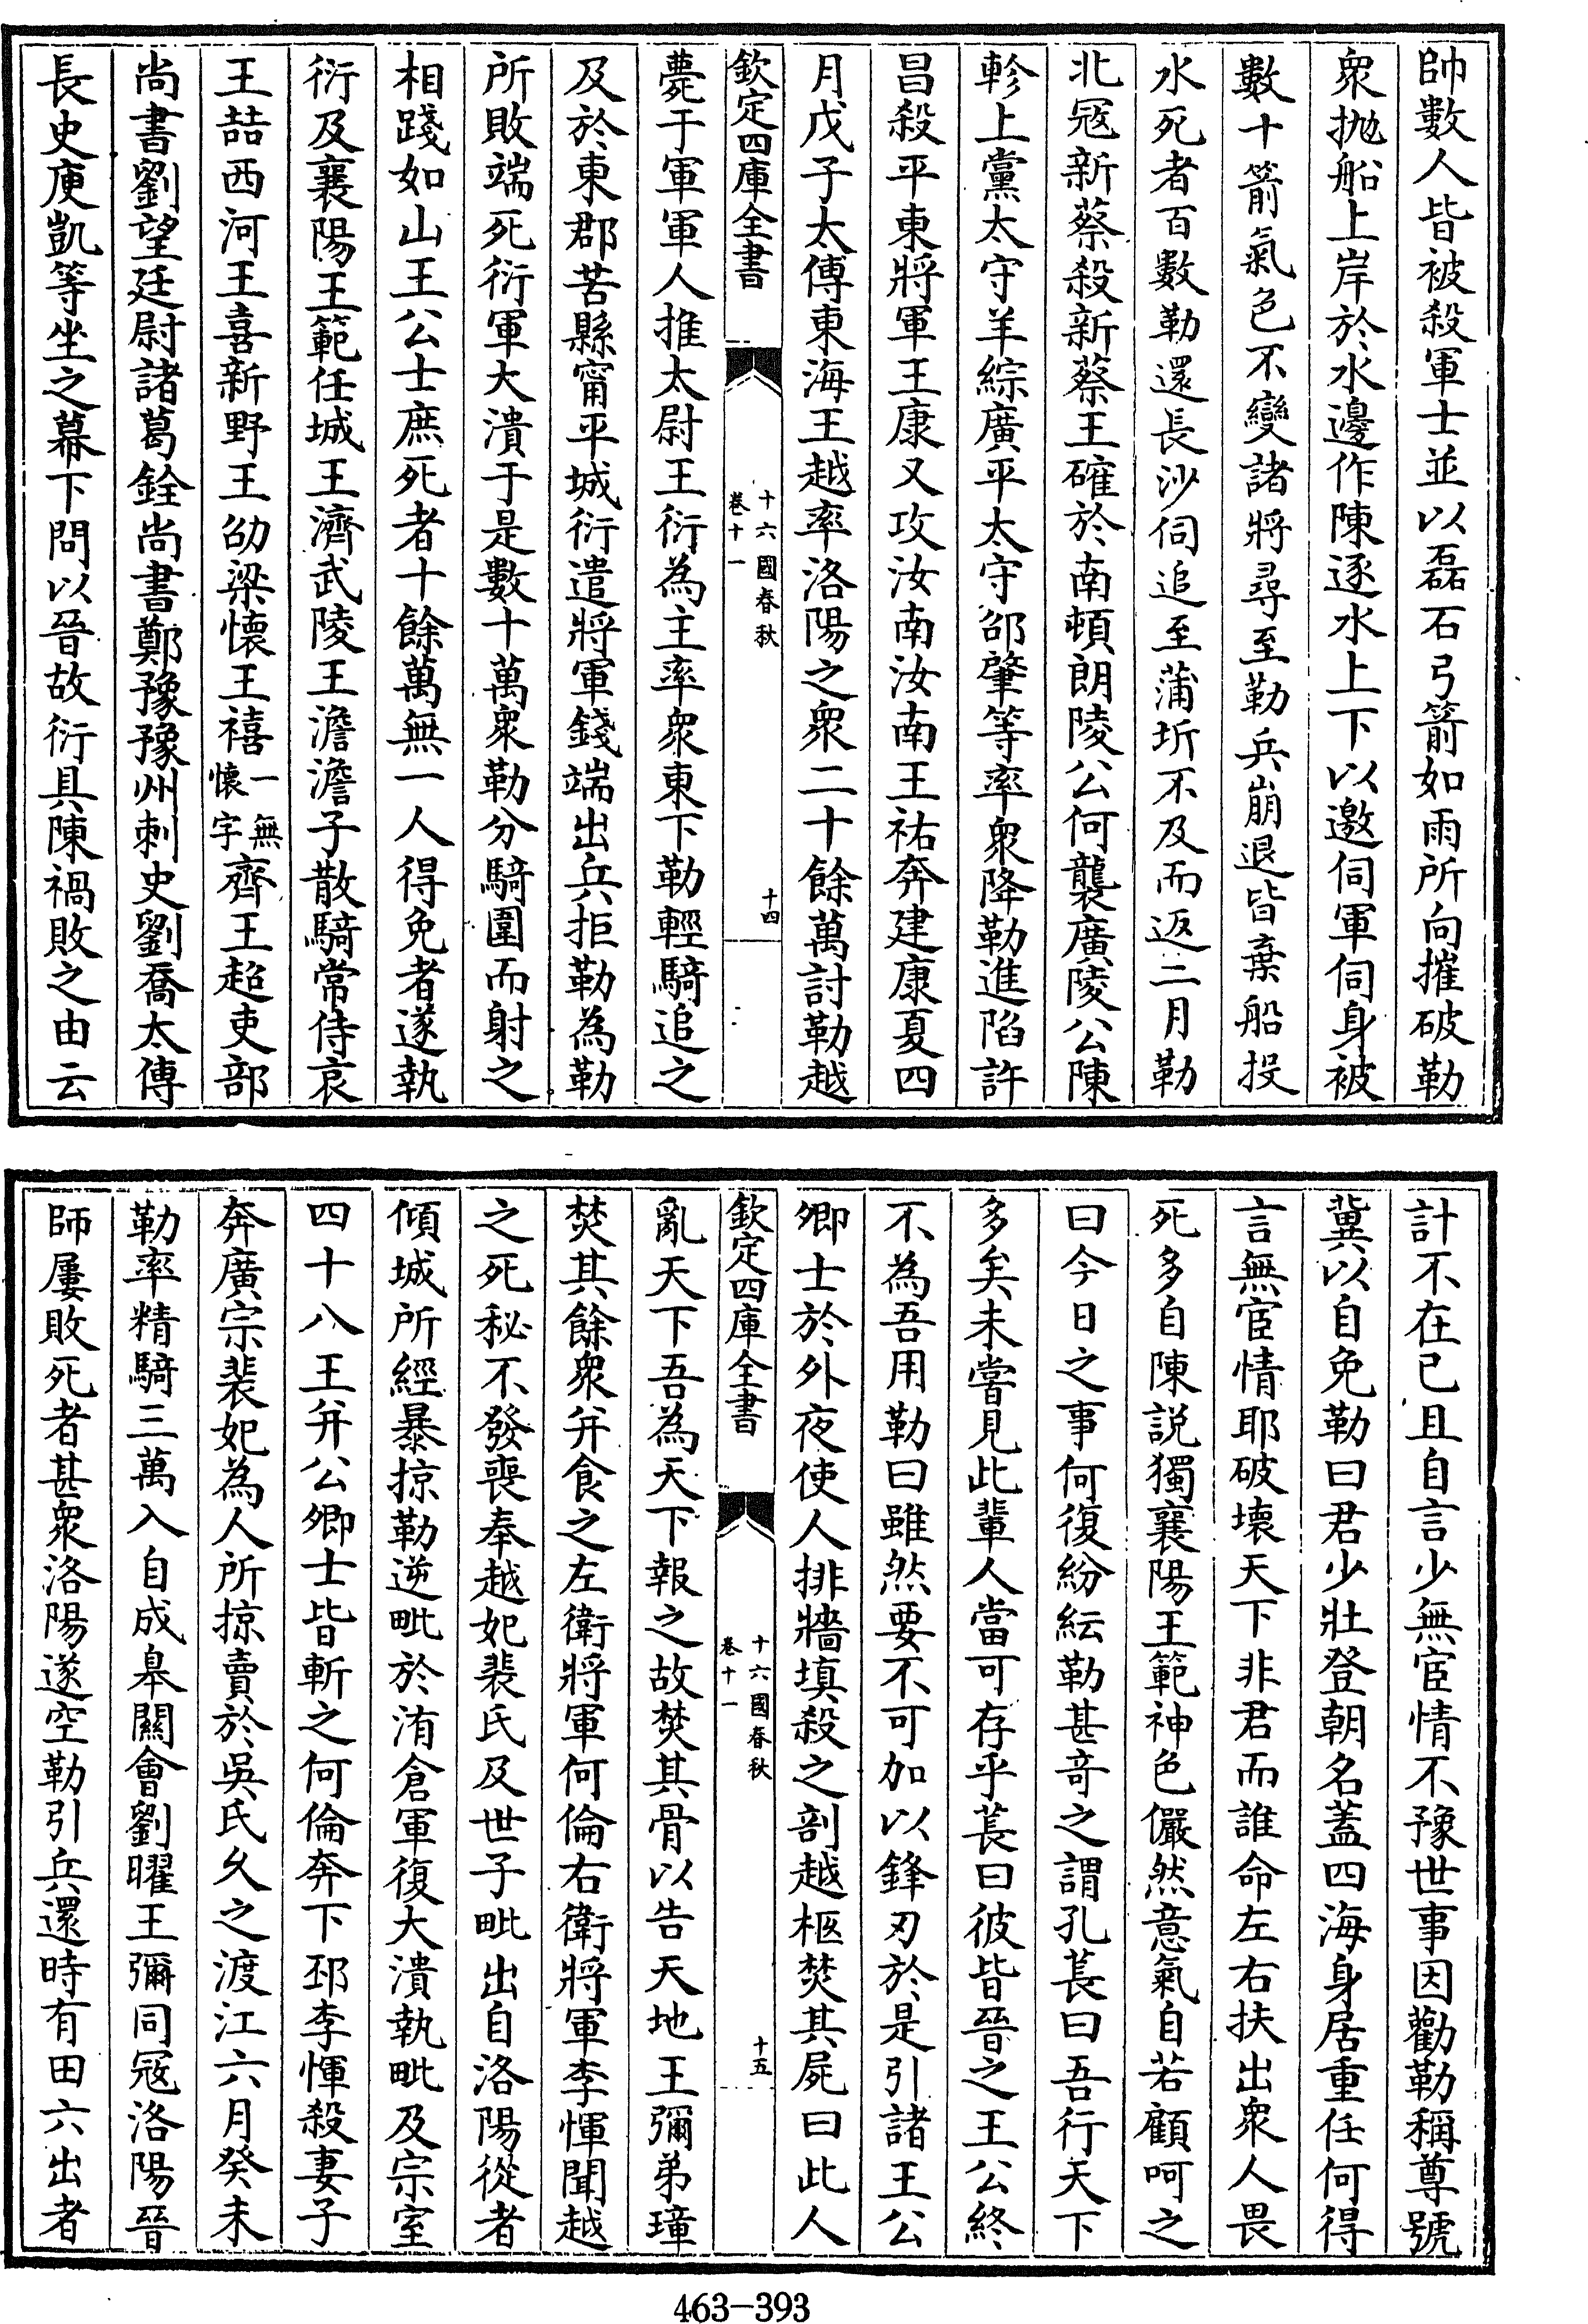 帥數人皆被殺軍士並以磊石弓箭如雨所向摧破勒
衆抛船上岸於水邊作陳逐水上下以邀伺軍伺身被
數十箭氣色不變諸將尋至勒兵崩退皆棄船投
水死者百數勒還長沙伺追至蒲圻不及而返二月勒
北冦新蔡殺新蔡王確於南頓朗陵公何襲廣陵公陳
軫上黨太守羊綜廣平太守邵肇等率衆降勒進陷許
昌殺平東將軍王康又攻汝南汝南王祐奔建康夏四
月戊子太傅東海王越率洛陽之衆二十餘萬討勒越
欽定四庫全書
十六國春秋
卷十一
十四
薨于軍軍人推太尉王衍為主率衆東下勒輕騎追之
及於東郡苦縣甯平城衍遣將軍錢端出兵拒勒為勒
所敗端死衍軍大潰于是數十萬衆勒分騎圍而射之
相踐如山王公士庶死者十餘萬無一人得免者遂執
衍及襄陽王範任城王濟武陵王澹澹子散騎常侍哀
王喆西河王喜新野王劭梁懷王禧一無懷字齊王超吏部
尚書劉望廷尉諸葛銓尚書鄭豫豫州刺史劉喬太傅
長史庾凱等坐之幕下問以晉故衍具陳禍敗之由云
計不在已且自言少無宦情不豫世事因勸勒稱尊號
冀以自免勒曰君少壯登朝名蓋四海身居重任何得
言無宦情耶破壊天下非君而誰命左右扶出衆人畏
死多自陳說獨襄陽王範神色儼然意氣自若顧呵之
曰今日之事何復紛紜勒甚竒之謂孔萇曰吾行天下
多矣未嘗見此輩人當可存乎萇曰彼皆晉之王公終
不為吾用勒曰雖然要不可加以鋒刃於是引諸王公
卿士於外夜使人排牆填殺之剖越柩焚其屍曰此人
欽定四庫全書
十六國春秋
卷十一
十五
亂天下吾為天下報之故焚其骨以告天地王彌弟璋
焚其餘衆并食之左衛將軍何倫右衛將軍李惲聞越
之死秘不發喪奉越妃裴氏及世子毗出自洛陽從者
傾城所經暴掠勒逆毗於洧倉軍復大潰執毗及宗室
四十八王并公卿士皆斬之何倫奔下邳李惲殺妻子
奔廣宗裴妃為人所掠賣於吳氏久之渡江六月癸未
勒率精騎三萬入自成皋關會劉曜王彌同冦洛陽晉
師屢敗死者甚衆洛陽遂空勒引兵還時有田六出者
463-393